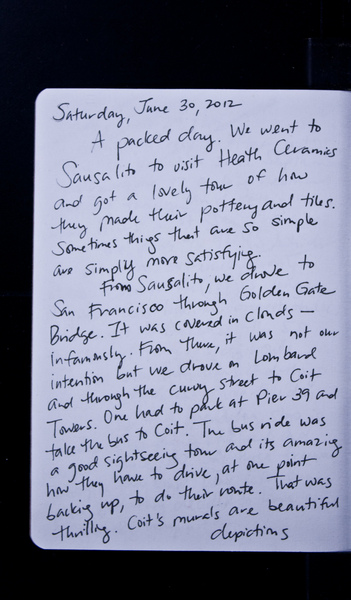 Saturday, June 30, 2012
A packed day. We went to
Sausalito to visit Heath Ceramics
and got a lovely tour of how
they made their pottery and tiles.
Sometimes things that are so simple
are simply more satisfying.
From Sausalito, we drove to
San Francisco through Golden Gate
Bridge. It was covered in clouds —
infamously. From there, it was not our
intention but we drove on Lombard
and through the curvy street to Coit
Towers. One had to park at Pier 39 and
take the bus to Coit. The bus ride was
a good sightseeing tour and its amazing
how they have to drive, at one point
backing up, to do their route. That was
thrilling. Coit's murals are beautiful
depictions